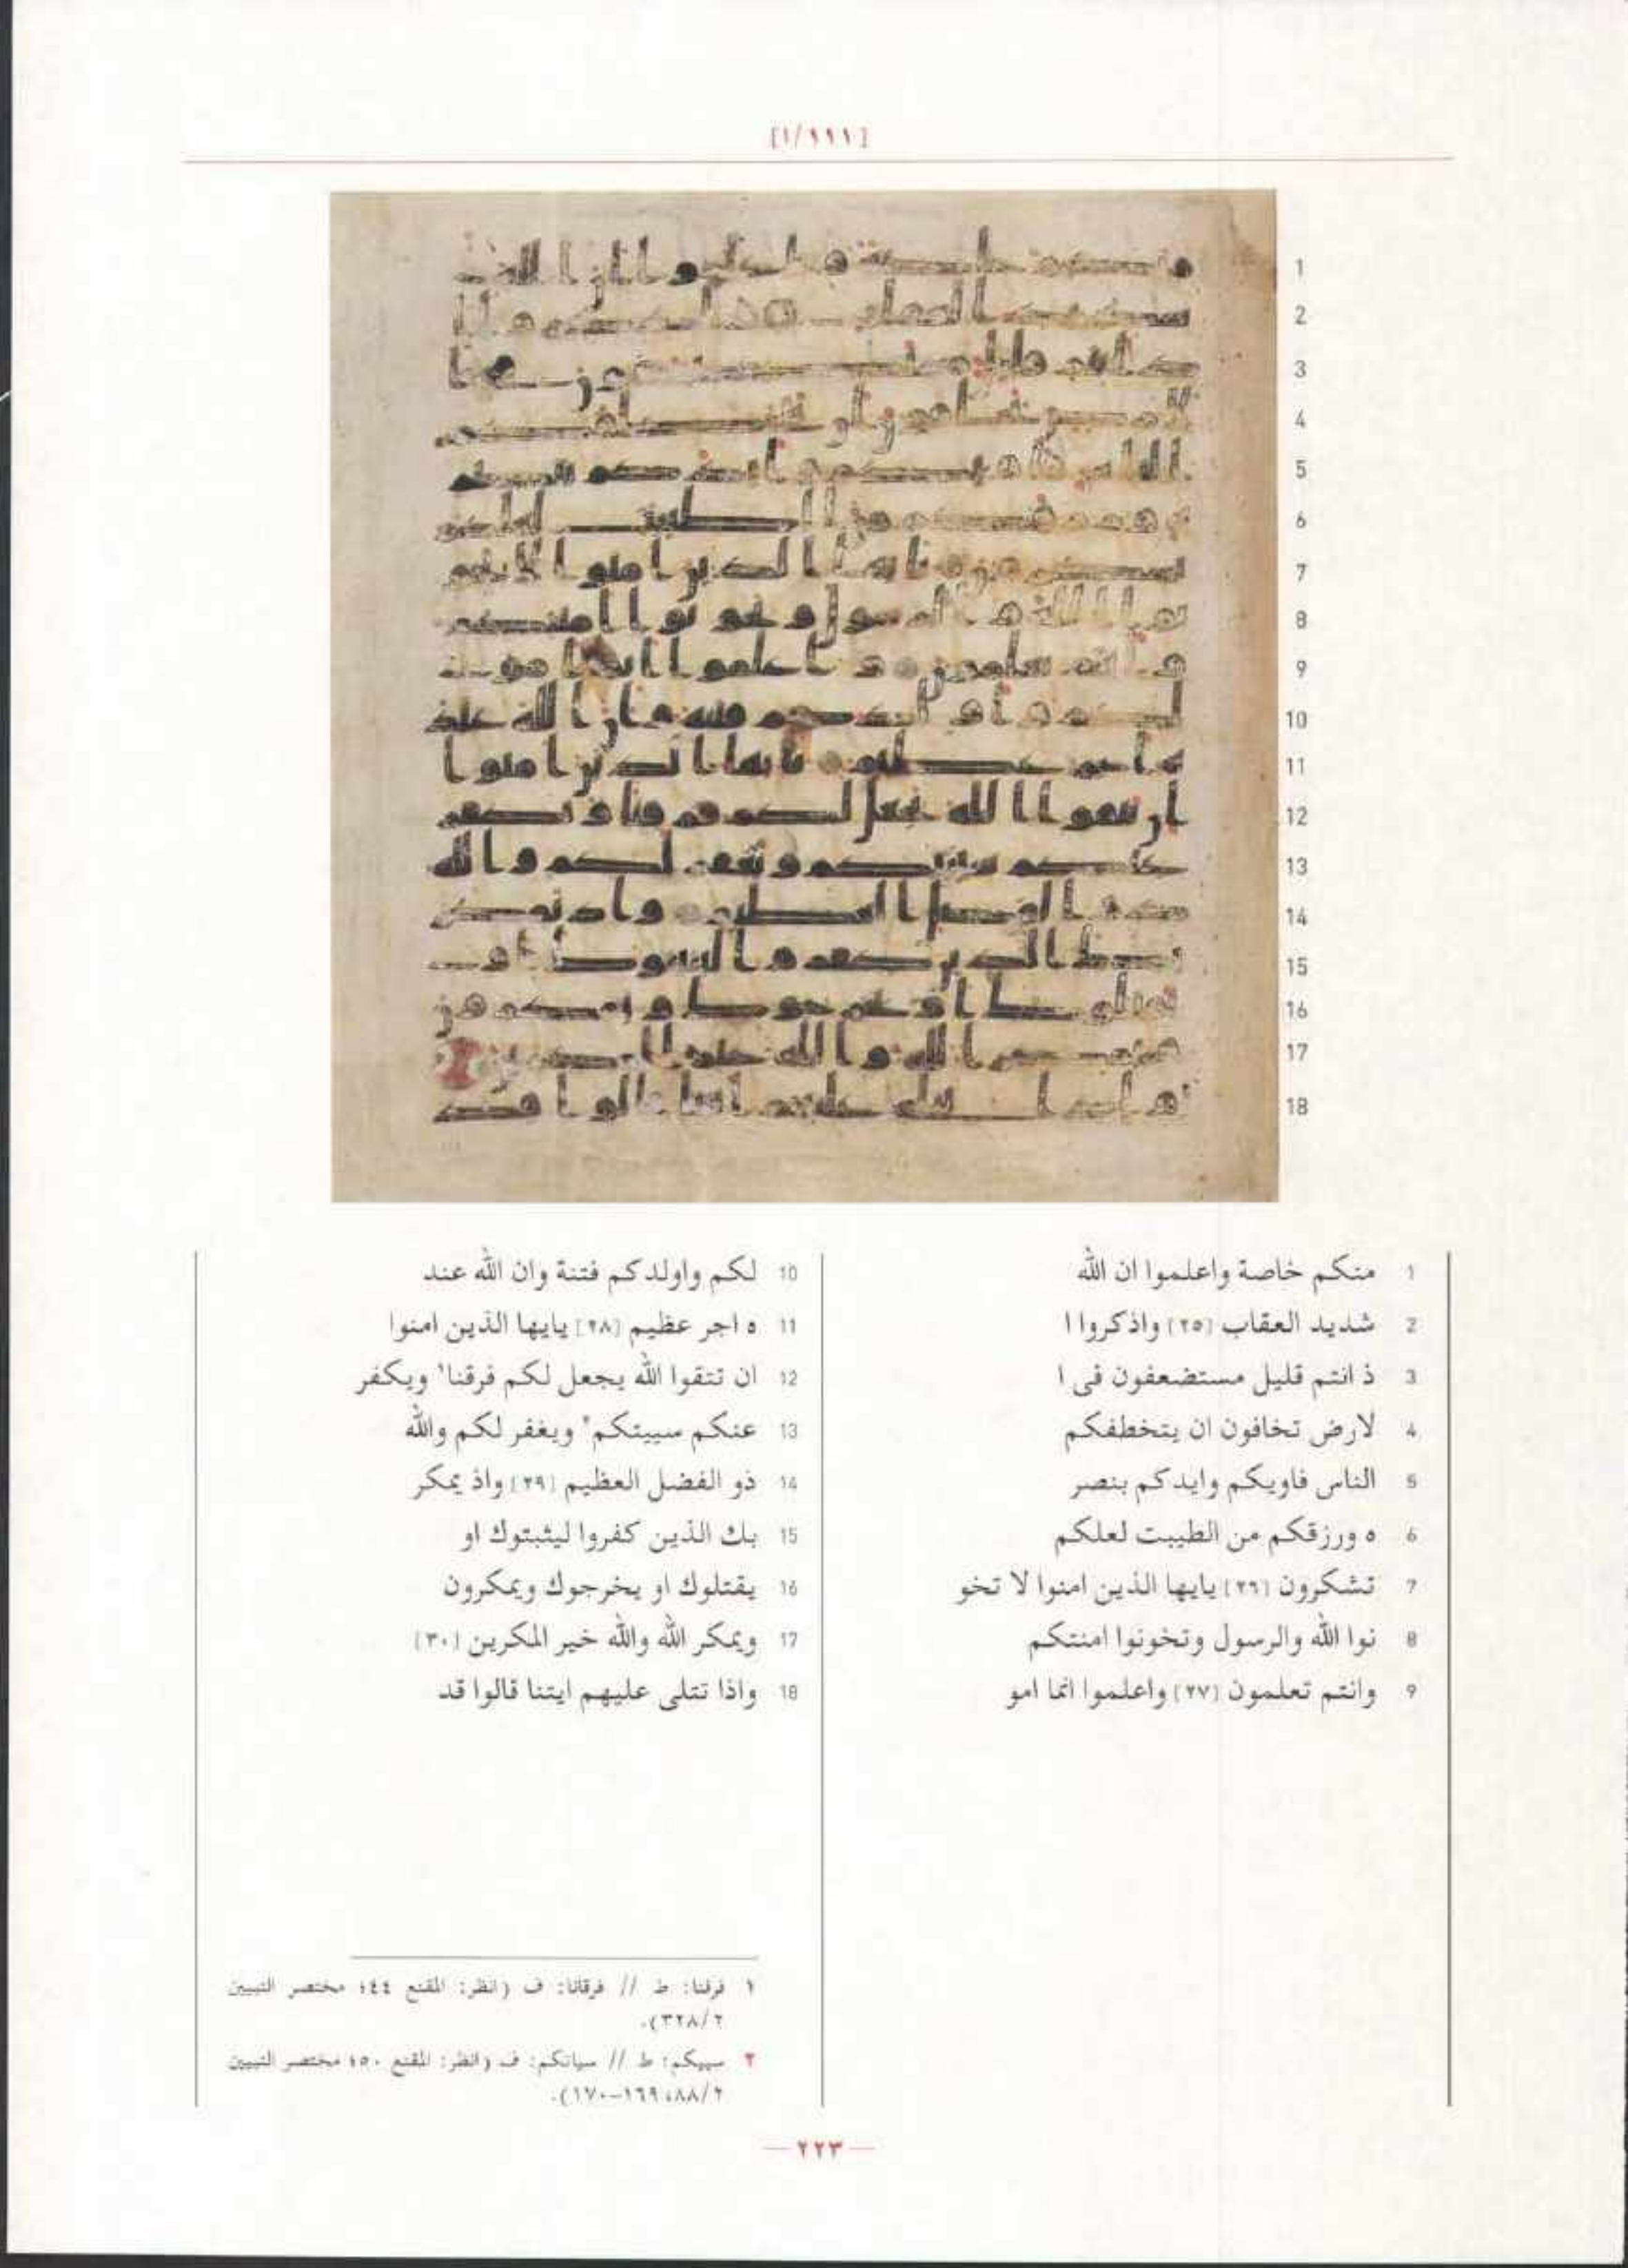 1 منكم خاصة واعلموا ان الله
2 شديد العقاب [٢٥] واذكروا ا
3 ذ انتم قليل مستضعفون فى ا
4 لارض تخافون ان يتخطفكم
5 الناس فاويكم وايدكم بنصر
6 ه ورزقكم من الطيبت لعلكم
7 تشكرون [٢٦] يايها الذين امنوا لا تخو
8 نوا الله والرسول وتخونوا امنتكم
9 وانتم تعلمون [٢٧] واعلموا انما امو
10 لكم واولدكم فتنة وان الله عند
11 ه اجر عظيم [٢٨] يايها الذين امنوا
12 ان تتقوا الله يجعل لكم فرقنا١ ويكفر
13 عنكم سييتكم٢ ويغفر لكم والله
14 ذو الفضل العظيم [٢٩] واذ يمكر
15 بك الذين كفروا ليثبتوك او
16 يقتلوك او يخرجوك ويمكرون
17 ويمكر الله والله خير المكرين [٣٠]
18 واذا تتلى عليهم ايتنا قالوا قد
١ فرقنا: ط // فرقانا: ف (انظر: المقنع ٤٤؛ مختصر التبيين
٣٢٨/٢).
٢ سييكم: ط // سياتكم: ف (انظر: المقنع ٥٠؛ مختصر التبيين
٨٨/٢، ١٦٩–١٧٠).
— ٢٢٣ —